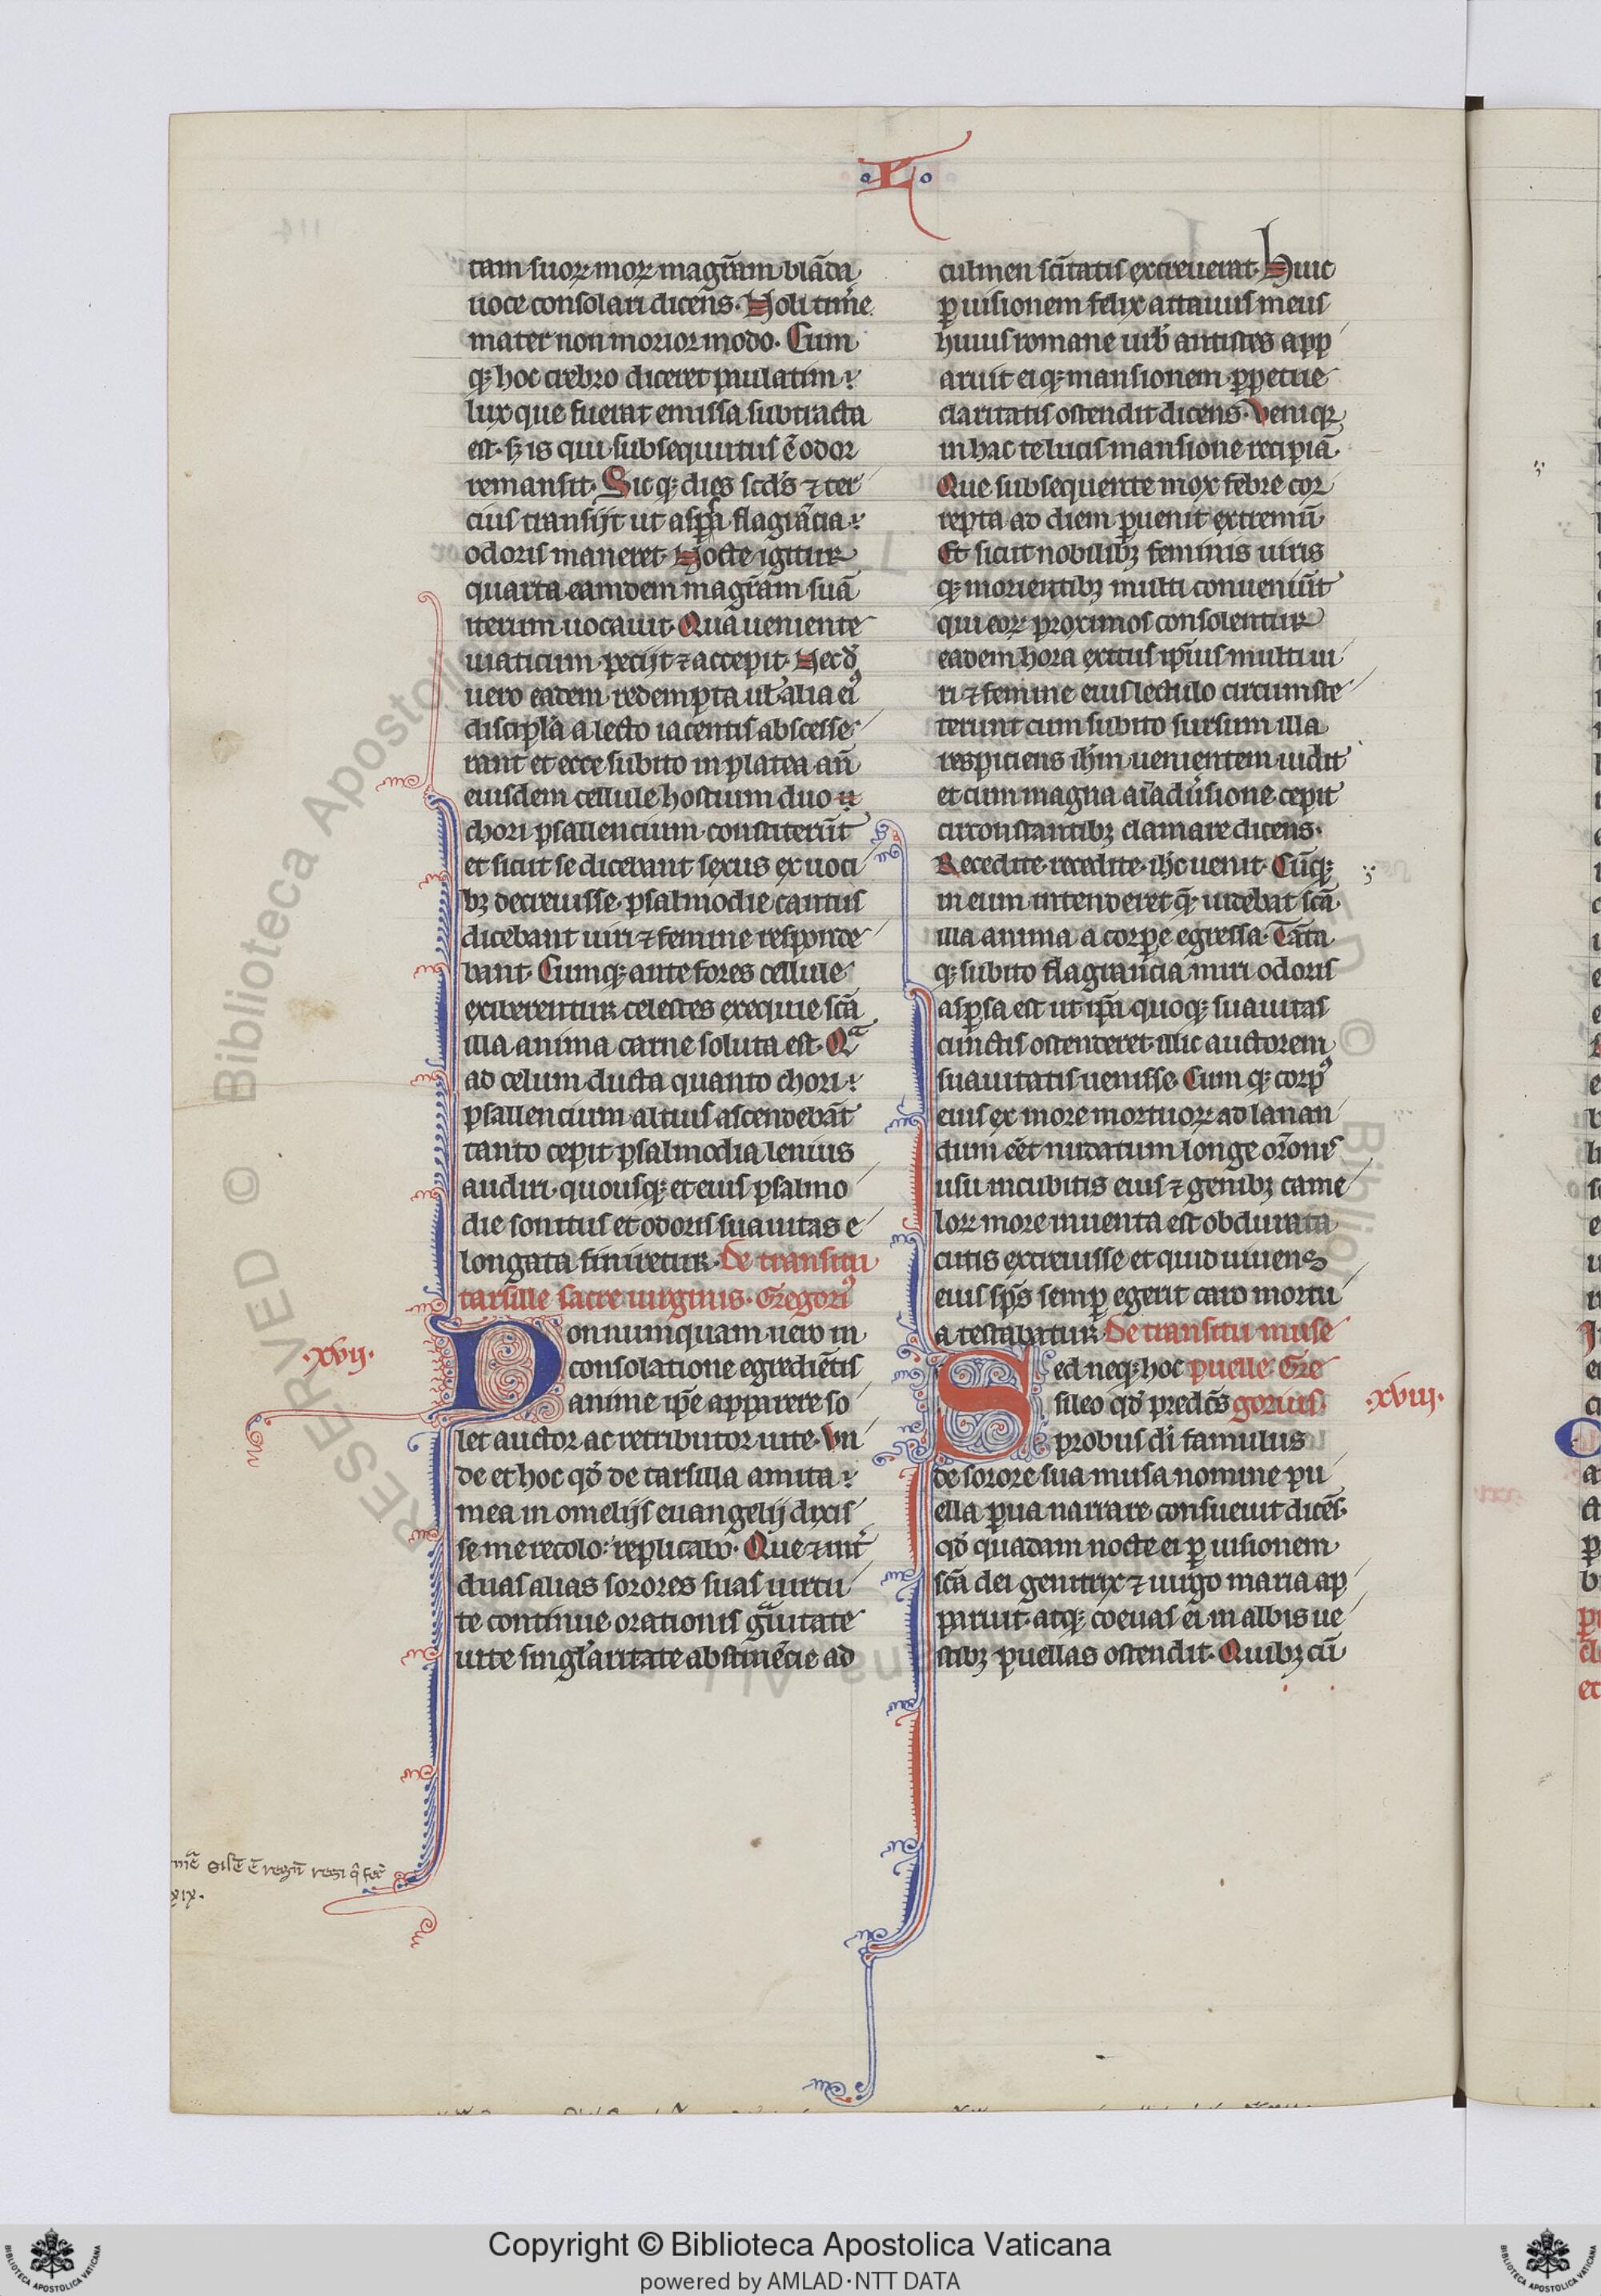 L
tam suoꝝ moꝝ magr̄am blāda
uoce consolari dicen̄s. Noli tim̄e
mater non morior modo. Cum
qꝫ hoc crebro diceret paulatim
lux que fuerat emissa subtracta
est. sꝫ is qui subsequutus ē odor
remansit. Sic qꝫ dies scd̄s ⁊ ter
cius transijt ut asꝑsa flagrācia
odoris maneret. Nocte igitur
quarta eamdem magr̄am suā
iterum uocauit. Qua ueniente
uiaticum pecijt ⁊ accepit. Necd̄
uero eadem redempta ul̓ alia ei᷒
discipl̓a a lecto iacentis abscesse
rant et ecce subito in platea an̄
eiusdem cellule hostium duo
chori psallencium constiterūt
et sicut se dicebant sexus ex uoci
bꝫ decreuisse psalmodie cantus
dicebant uiri ⁊ femine responde
bant. Cumqꝫ ante fores cellule
exiberentur celestes exequie scā
illa anima carne soluta est. Qᵃ
ad celum ducta quanto chori
psallencium altius ascendebāt
tanto cepit psalmodia lenius
audiri quousqꝫ et eius psalmo
die sonitus et odoris suauitas e
longata finiretur. De transitu
tarsille sacre uirginis. Gregori᷒
.xvij.
Nonnumquam uero in
consolatione egrediētis
anime ip̄e apparere so
let auctor ac retributor uite. Vn
de et hoc qd̄ de tarsilla amita
mea in omelijs euangelij dixis
se me recolo replicabo. Que ⁊ int̄
duas alias sorores suas uirtu
te continue orationis gͣuitate
uite singl̓aritate abstinēcie ad
culmen scītatis excreuerat. Huic
ꝑ uisionem felix attauus meus
huius romane urb̄ antistes app
aruit eiqꝫ mansionem ꝑpetue
claritatis ostendit dicens. Veni qꝛ
in hac te lucis mansione recipiā.
Que subsequente mox febre cor
repta ad diem ꝑuenit extremū
Et sicut nobilibꝫ feminis uiris
qꝫ morientibꝫ multi conueniūt
qui eoꝝ proximos consolentur
eadem hora exitus ip̄ius multi ui
ri ⁊ femine eius lectulo circumste
terunt cum subito sursum illa
respiciens ih̄m uenientem uidit
et cum magna aīaduersione cepit
circonstantibꝫ clamare dicens.
Recedite recedite. ih̄c uenit. Cūqꝫ
in eum intenderet q̄ uidebat scā
illa anima a corꝑe egressa. Tāta
qꝫ subito flagrancia miri odoris
asꝑsa est ut ip̄a quoqꝫ suauitas
cunctis ostenderet illic auctorem
suauitatis uenisse. Cum qꝫ corp᷒
eius ex more mortuoꝝ ad lauan
dum eēt nudatum longe or̄onis
usu in cubitis eius ⁊ genibꝫ came
loꝝ more inuenta est obdurata
cutis excreuisse et quid uiuens
eius sp̄s semꝑ egerit caro mortu
a testabatur. De transitu muse
puelle. Gre
gorius
.xviij.
Sed neqꝫ hoc
sileo qd̄ predc̄s
probus di famulus
de sorore sua musa nomine pu
ella ꝑua narrare consueuit dicēs.
qd̄ quadam nocte ei ꝑ uisionem
scā dei genitrix ⁊ uirgo maria ap
paruit. atqꝫ coeuas ei in albis ue
stibꝫ puellas ostendit. Quibꝫ cū
Copyright © Biblioteca Apostolica Vaticana
powered by AMLAD·NTT DATA